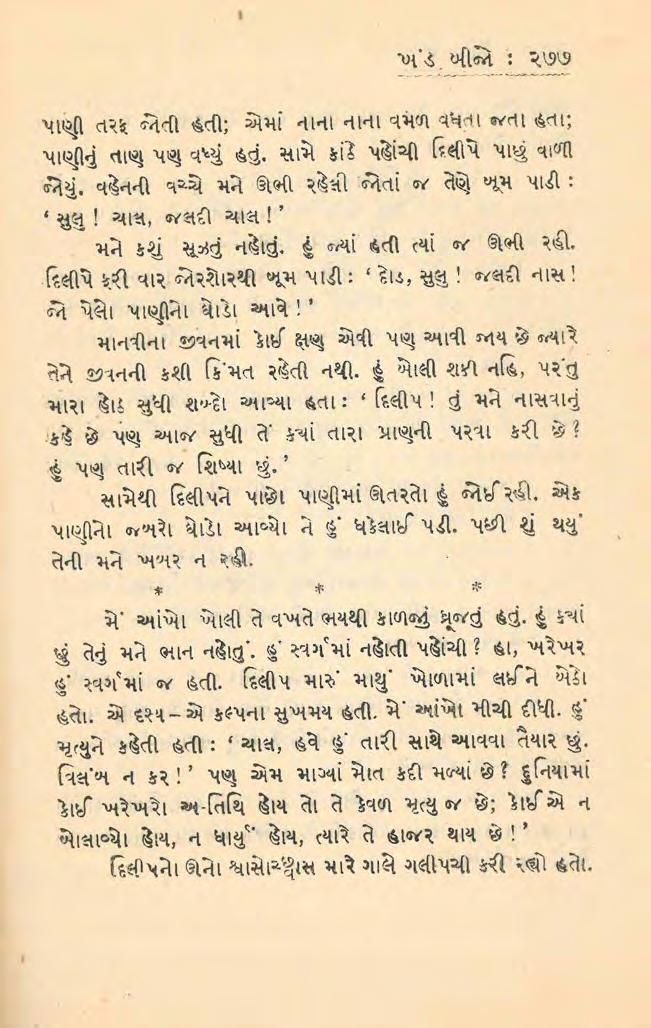 ખંડ બીજો : ૨૭૭
પાણી તરફ જોતી હતી; એમાં નાના નાના વમળ વધતા જતા હતા;
પાણીનું તાણ પણ વધ્યું હતું. સામે કાંઠે પહોંચી દિલીપે પાછું વાળી
જોયું. વહેનની વચ્ચે મને ઊભી રહેલી જોતાં જ તેણે બૂમ પાડી :
‘ સુલુ ! ચાલ, જલદી ચાલ ! ’
મને કશું સૂઝતું નહોતું. હું જ્યાં હતી ત્યાં જ ઊભી રહી.
દિલીપે ફરી વાર જોરશોરથી બૂમ પાડી : ‘ દોડ, સુલુ ! જલદી નાસ !
જો પેલો પાણીનો ઘોડો આવે ! ’
માનવીના જીવનમાં કોઈ ક્ષણ એવી પણ આવી જાય છે જ્યારે
તેને જીવનની કશી કિંમત રહેતી નથી. હું બોલી શકી નહિ, પરંતુ
મારા હોઠ સુધી શબ્દો આવ્યા હતા : ‘ દિલીપ ! તું મને નાસવાનું
કહે છે પણ આજ સુધી તેં ક્યાં તારા પ્રાણની પરવા કરી છે ?
હું પણ તારી જ શિષ્યા છું. ’
સામેથી દિલીપને પાછો પાણીમાં ઊતરતો હું જોઈ રહી. એક
પાણીનો જબરો ઘોડો આવ્યો ને હું ધકેલાઈ પડી. પછી શું થયું
તેની મને ખબર ન રહી.
* * *
મેં આંખો ખોલી તે વખતે ભયથી કાળજું ધ્રૂજતું હતું. હું ક્યાં
છું તેનું મને ભાન નહોતું. હું સ્વર્ગમાં નહોતી પહોંચી ? હા, ખરેખર
હું સ્વર્ગમાં જ હતી. દિલીપ મારું માથું ખોળામાં લઈને બેઠો
હતો. એ દૃશ્ય – એ કલ્પના સુખમય હતી. મેં આંખો મીચી દીધી. હું
મૃત્યુને કહેતી હતી : ‘ ચાલ, હવે હું તારી સાથે આવવા તૈયાર છું.
વિલંબ ન કર ! ’ પણ એમ માગ્યાં મોત કદી મળ્યાં છે ? દુનિયામાં
કોઈ ખરેખરો અ-તિથિ હોય તો તે કેવળ મૃત્યુ જ છે; કોઈ એ ન
બોલાવ્યો હોય, ન ધાર્યું હોય, ત્યારે તે હાજર થાય છે ! ’
દિલીપનો ઊનો શ્વાસોચ્છ્વાસ મારે ગાલે ગલીપચી કરી રહ્યો હતો.